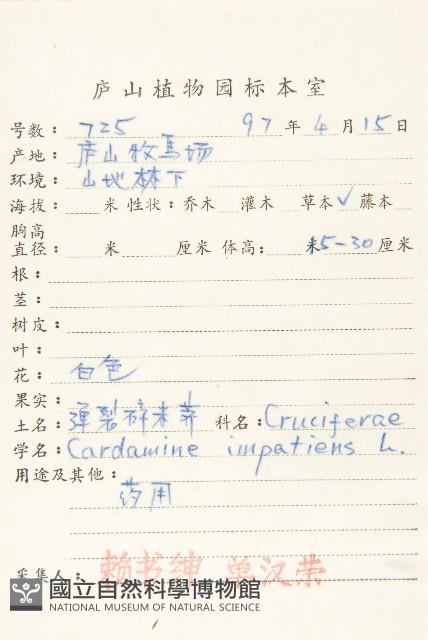 庐山植物园标本室
号数：725 97年4月15日
产地：庐山牧馬场
环境：山地林下
海拔：米 性状：乔木 灌木 草本✓ 藤本
胸高
直径：米 厘米 体高：米5-30厘米
根：
茎：
树皮：
叶：
花：白色
果实：
土名：弹裂碎米荠 科名：Cruciferae
学名：Cardamine impatiens L.
用途及其他：
药用
采集人：赖书绅 单汉荣
國立自然科學博物館
NATIONAL MUSEUM OF NATURAL SCIENCE